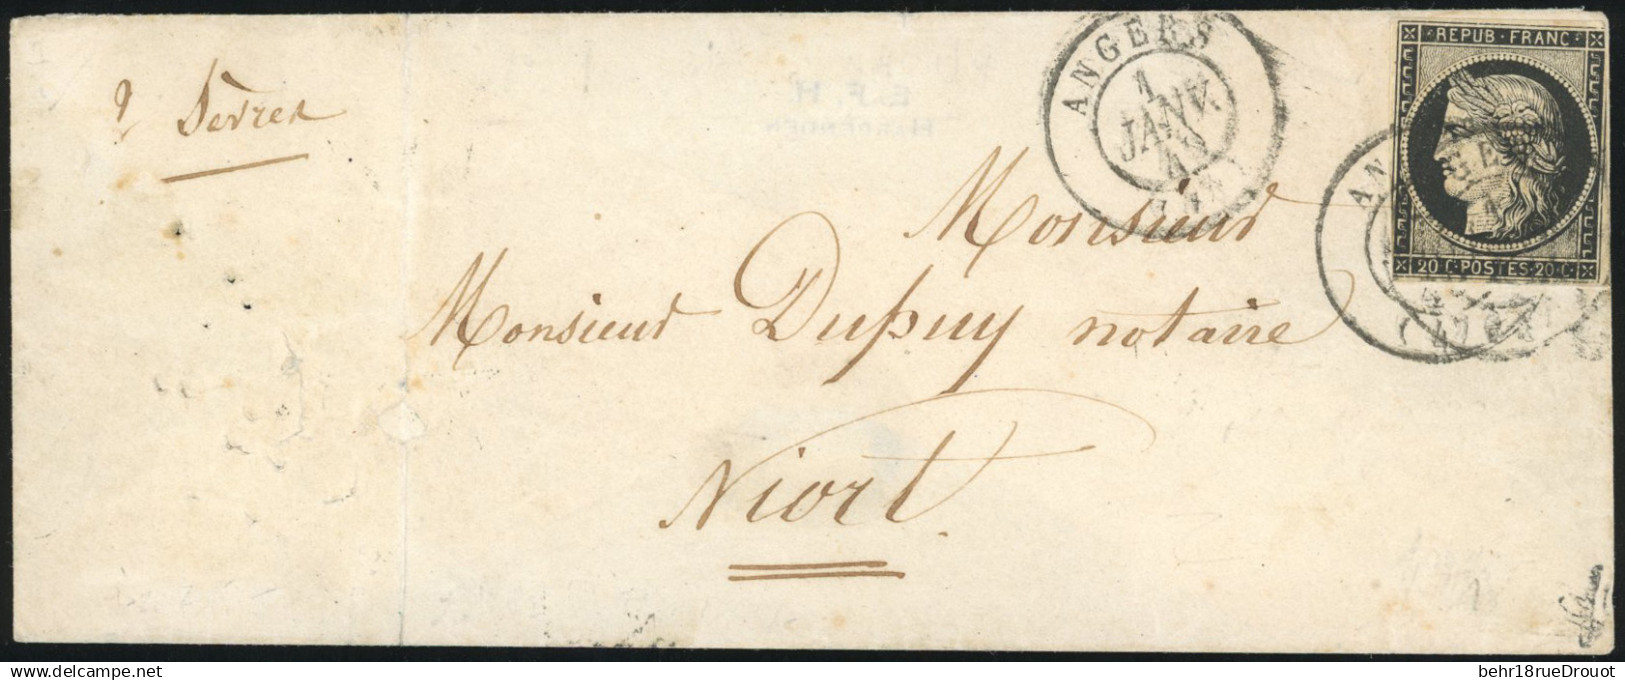 2 Sèvres
ANGERS
1
JANV.
49
REPUB·FRANC·
20·C·POSTES·20·C·
E.F.H.
Monsieur
Monsieur Dupuy notaire
Niort
behr18rueDrouot